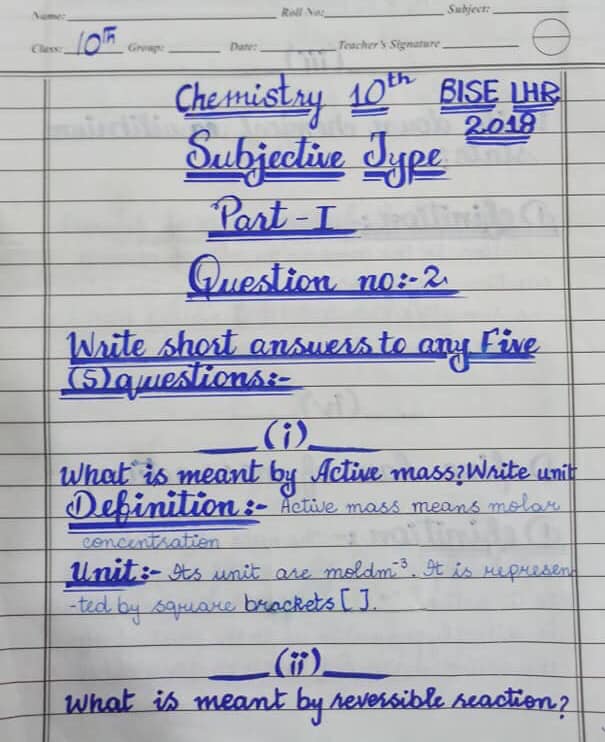 Name: Roll No: Subject:
Class: 10TH Group: Date: Teacher's Signature
Chemistry 10th BISE LHR
2018
Subjective Type
Part - I
Question no:- 2
Write short answers to any Five
(5) questions:-
(i)
What is meant by Active mass? Write unit
Definition :- Active mass means molar
concentration
Unit :- Its unit are moldm-3. It is represen
-ted by square brackets [ ].
(ii)
What is meant by reversible reaction?